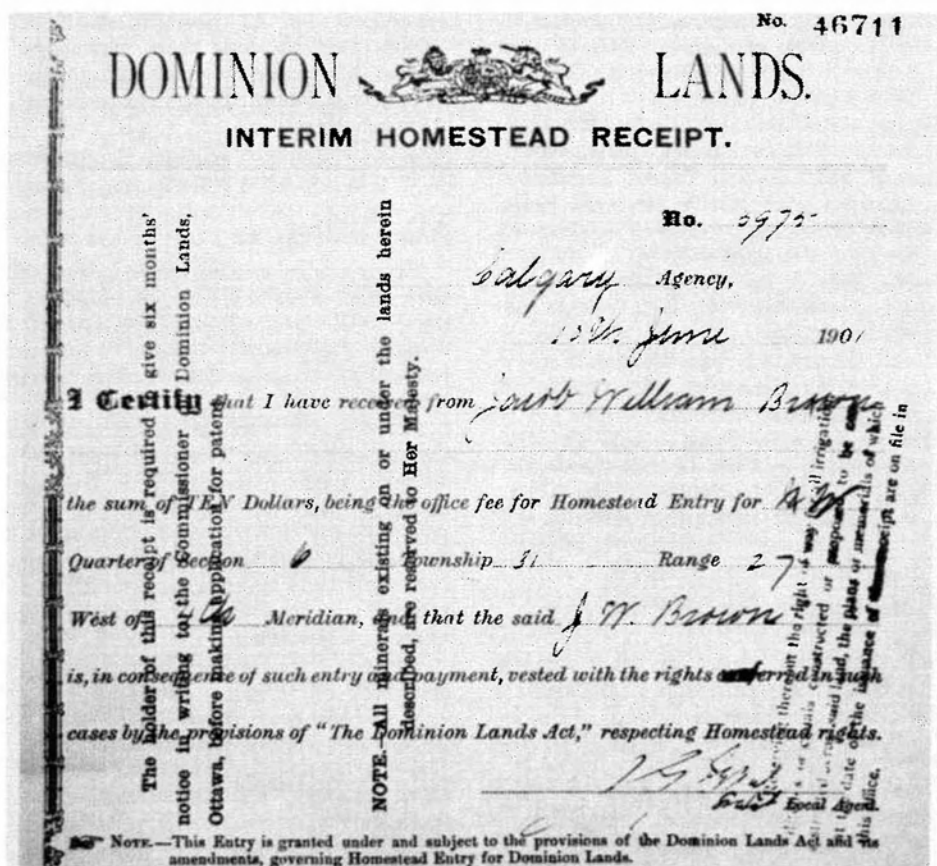 No. 46711
DOMINION LANDS.
INTERIM HOMESTEAD RECEIPT.
No. 5975
Calgary Agency,
June 1901
I Certify that I have received from Jacob William Brown
the sum of TEN Dollars, being the office fee for Homestead Entry for
Quarter of Section 6 Township 31 Range 27
West of 4th Meridian, and that the said J W. Brown
is, in consequence of such entry and payment, vested with the rights conferred in such
cases by the provisions of "The Dominion Lands Act," respecting Homestead rights.
Local Agent.
NOTE.—This Entry is granted under and subject to the provisions of the Dominion Lands Act and its
amendments, governing Homestead Entry for Dominion Lands.
The holder of this receipt is required to give six months'
notice in writing to the Commissioner of Dominion Lands,
Ottawa, before making application for patent.
NOTE.—All minerals existing on or under the lands herein
described, are reserved to Her Majesty.
the right of way irrigation
constructed or proposed to be
said land, the plans or memorials of which
the date of the issuance of receipt are on file in
this office,